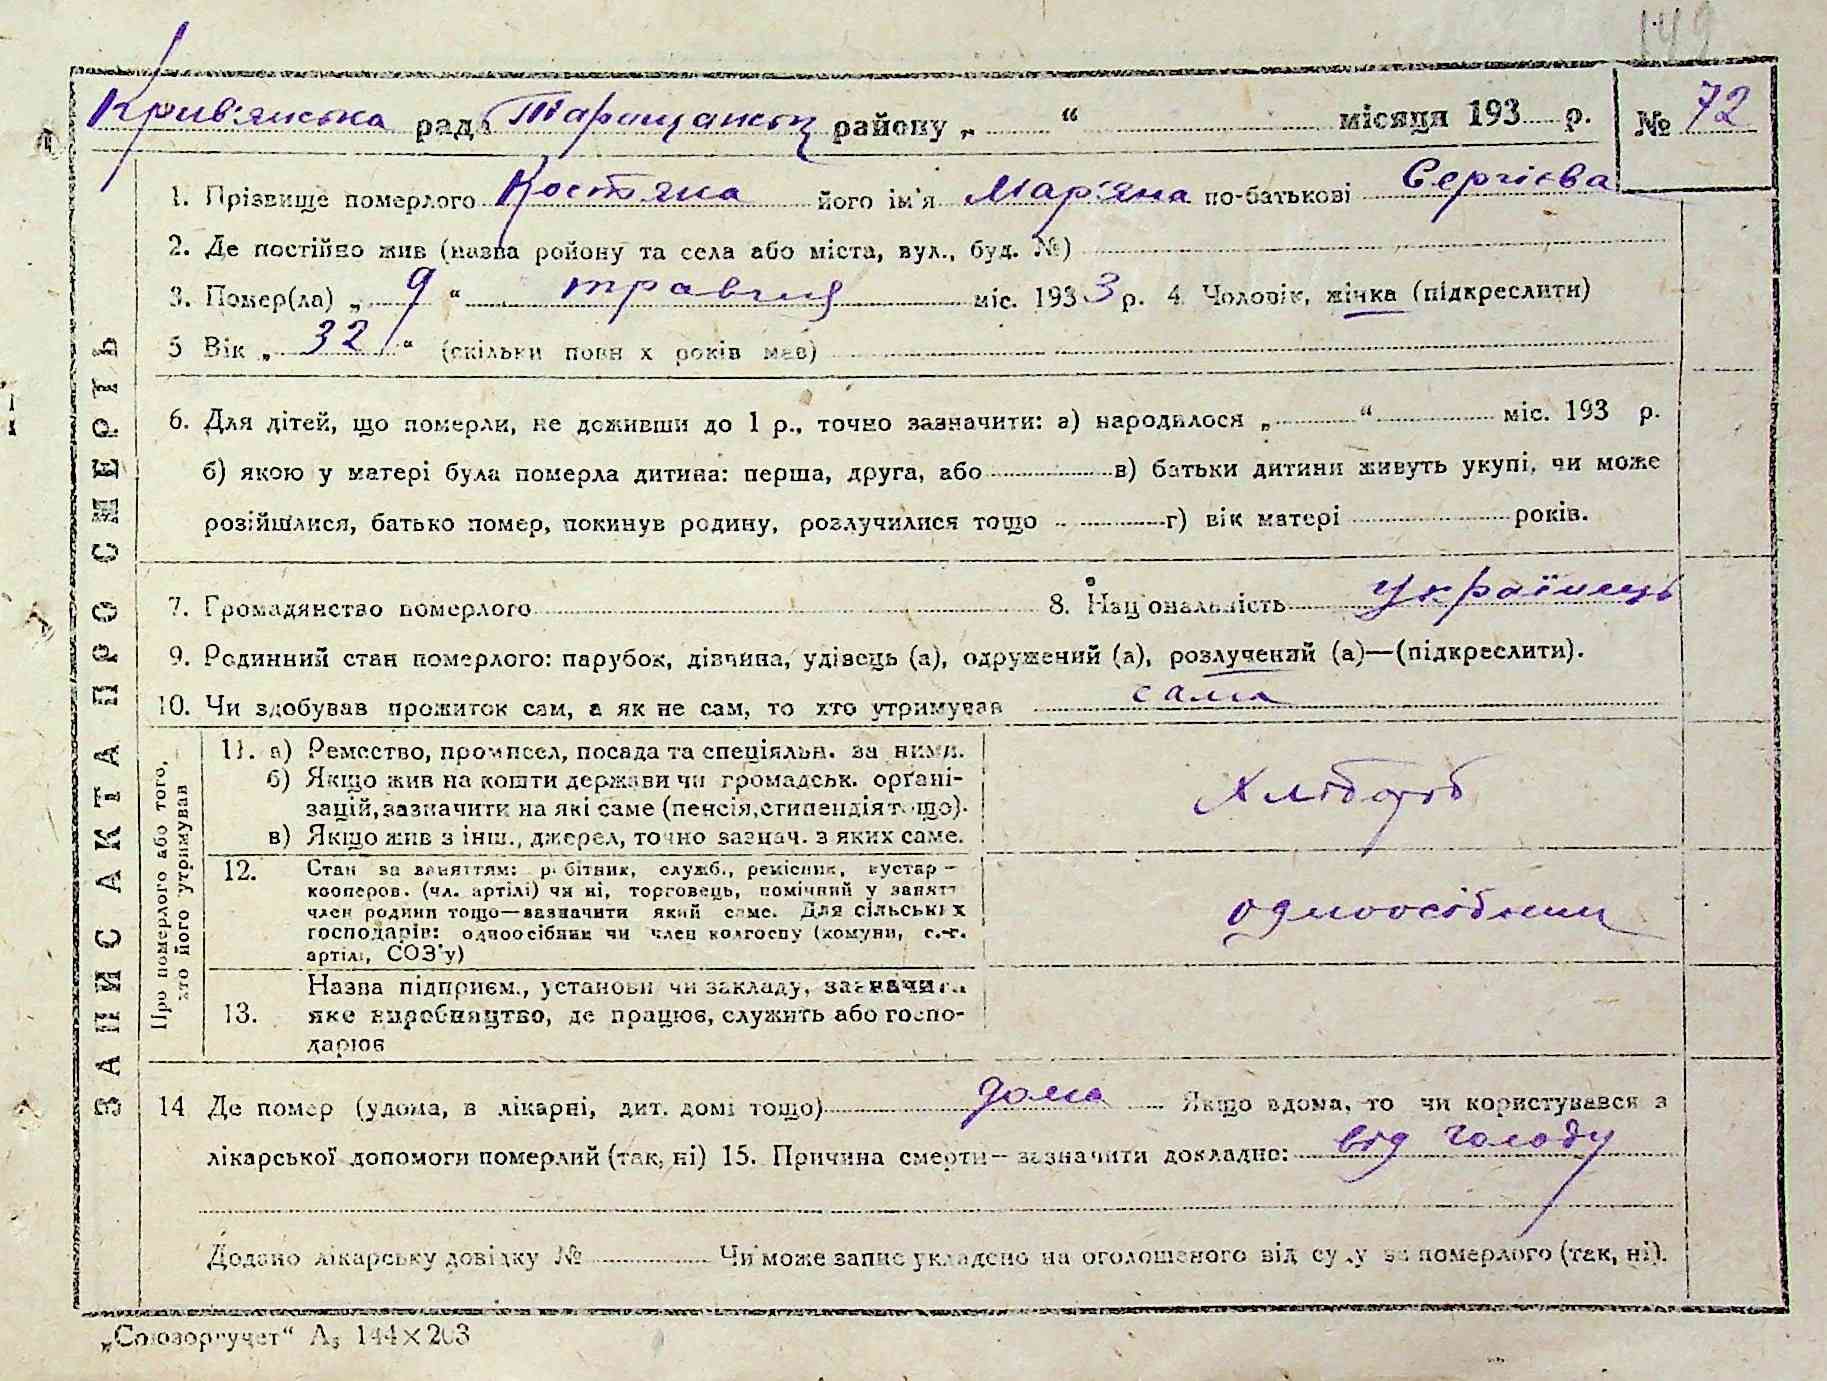 149
Крив'янська рада Таращанськ району „ “ місяця 193 р. № 72
ЗАПИС АКТА ПРО СМЕРТЬ
1. Прізвище померлого Костяна його ім'я Мар'яна по-батькові Сергієва
2. Де постійно жив (назва ройону та села або міста, вул., буд. №)
3. Помер(ла) „ 9 “ травня міс. 193 3 р. 4. Чоловік, жінка (підкреслити)
5 Вік „ 32 “ (скільки повн х років мав)
6. Для дітей, що померли, не доживши до 1 р., точно зазначити: а) народилося „ “ міс. 193 р.
б) якою у матері була померла дитина: перша, друга, або в) батьки дитини живуть укупі, чи може
розійшлися, батько помер, покинув родину, розлучилися тощо г) вік матері років.
7. Громадянство померлого 8. Нац ональність українець
9. Родинний стан померлого: парубок, дівчина, удівець (а), одружений (а), розлучений (а)—(підкреслити).
10. Чи здобував прожиток сам, а як не сам, то хто утримував сама
Про померлого або того, хто його утримував
11. а) Ремество, промисел, посада та спеціяльн. за ними.
б) Якщо жив на кошти держави чи громадськ. орґані-
зацій, зазначити на які саме (пенсія, стипендія тощо).
в) Якщо жив з інш., джерел, точно зазнач. з яких саме.
хлібороб
12. Стан за заняттям: р бітник, служб., ремісник, кустар—
кооперов. (чл. артілі) чи ні, торговець, помічний у занятт
член родини тощо—зазначити який саме. Для сільських
господарів: одноосібник чи член колгоспу (комуни, с.-г.
артілі, СОЗ'у)
одноосібник
13. Назва підприєм., установи чи закладу, зазначити
яке виробництво, де працює, служить або госпо-
дарює
14 Де помер (удома, в лікарні, дит. домі тощо) дома Якщо вдома, то чи користувався з
лікарської допомоги померлий (так, ні) 15. Причина смерти—зазначити докладно: від голоду
Додано лікарську довідку № Чи може запис укладено на оголошеного від суду за померлого (так, ні).
„Союзоргучет“ А5 144×203